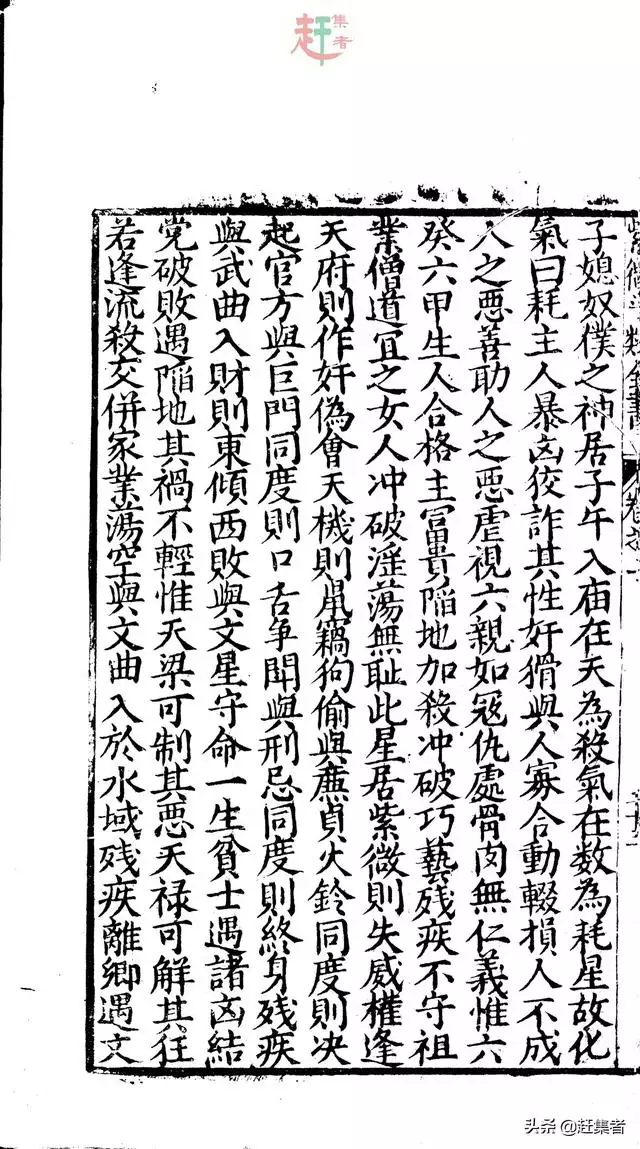 赶集者
子媳奴僕之神居子午入庙在天為殺氣在数為耗星故化
氣曰耗主人暴凶狡詐其性奸猾與人寡合動輟損人不成
人之惡善助人之惡虐視六親如冦仇處骨肉無仁義惟六
癸六甲生人合格主冨貴陥地加殺冲破巧藝残疾不守祖
業僧道宜之女人冲破淫蕩無耻此星居紫微則失威權逢
天府則作奸偽會天機則鼠竊狗偷與廉貞火鈴同度則决
起官方與巨門同度則口舌争闘與刑忌同度則終身残疾
與武曲入財則東傾西敗與文星守命一生貧士遇諸凶結
党破敗遇陥地其禍不輕惟天梁可制其惡天禄可解其狂
若逢流殺交併家業蕩空與文曲入於水域残疾離鄉遇文
头条 @赶集者